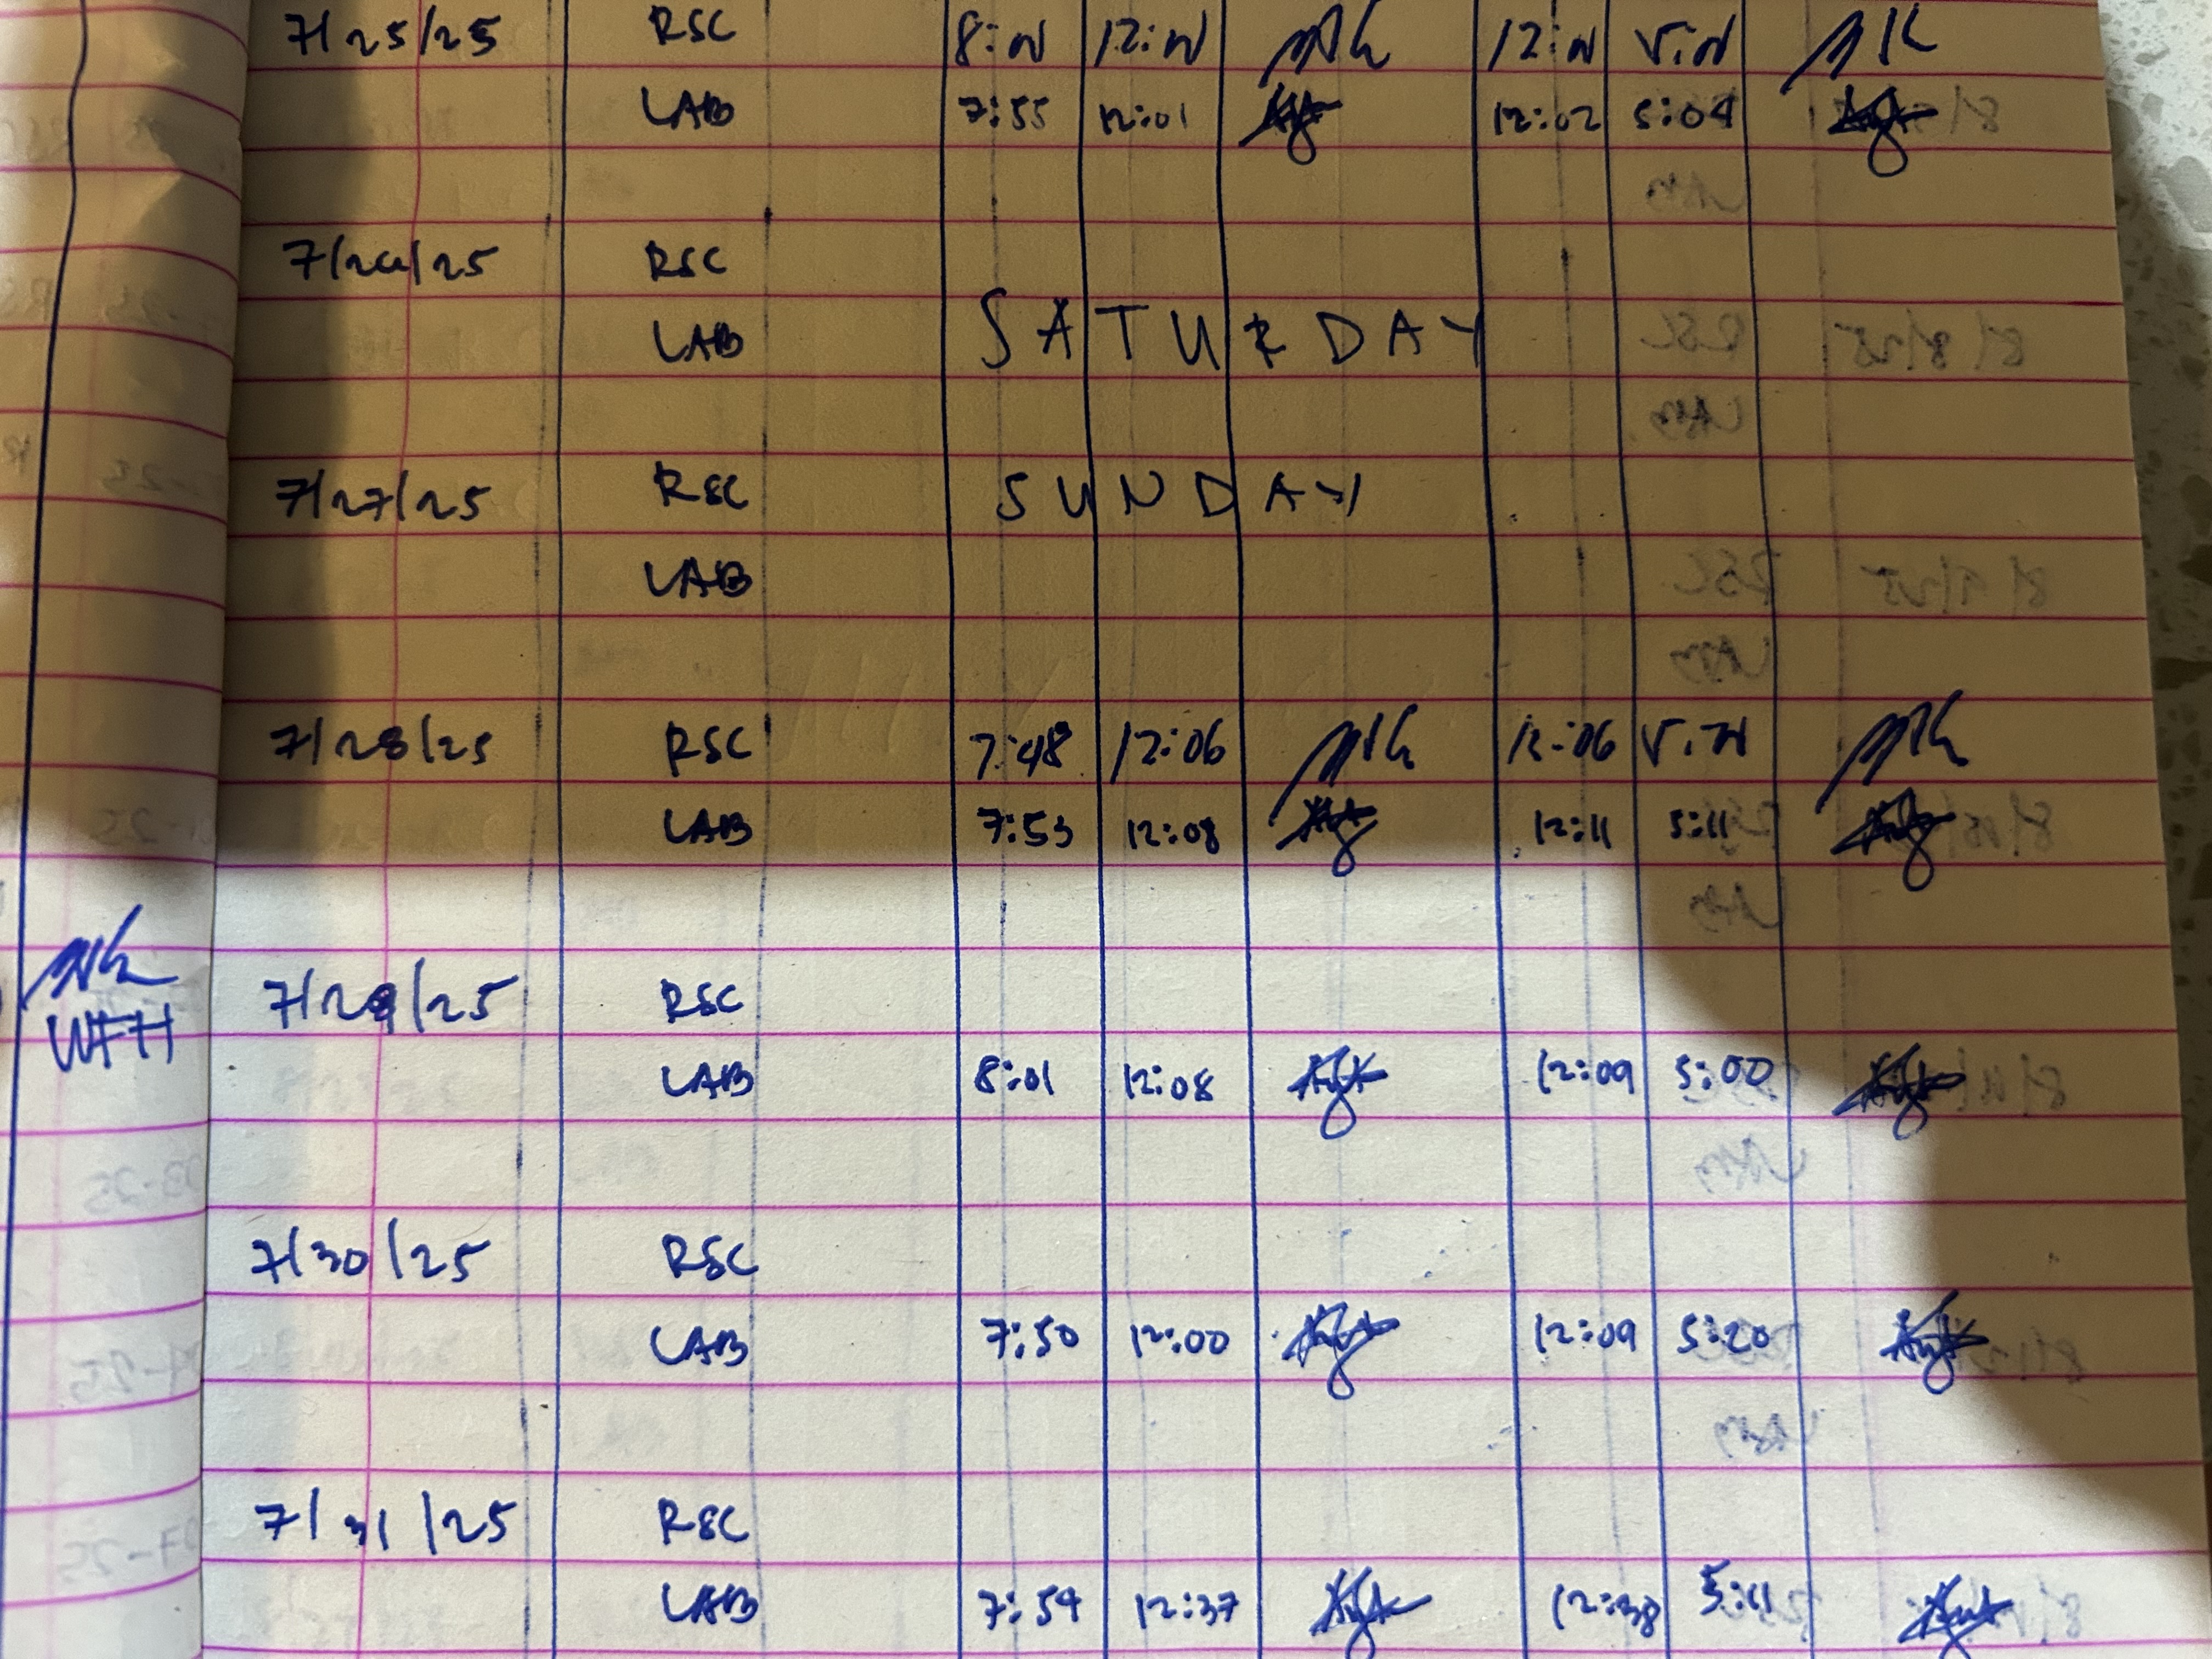 7/25/25 RSC 8:00 12:00 12:00 5:00
LAB 7:55 12:01 12:02 5:04
7/26/25 RSC
LAB SATURDAY
7/27/25 RSC SUNDAY
LAB
7/28/25 RSC 7:48 12:06 12:06
LAB 7:53 12:08 12:11 5:11
7/29/25 RSC
WFH
LAB 8:01 12:08 12:09 5:00
7/30/25 RSC
LAB 7:50 12:00 12:09 5:20
7/31/25 RSC
LAB 7:54 12:37 12:38 5:11